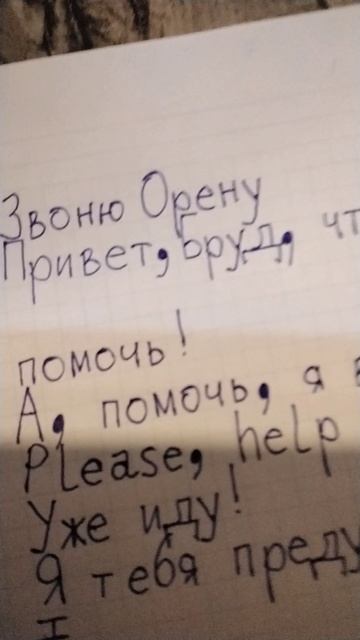 Звоню Орену
Привет, Бруд, чт
помочь!
А, помочь, я
Please, help
Уже иду!
Я тебя преду